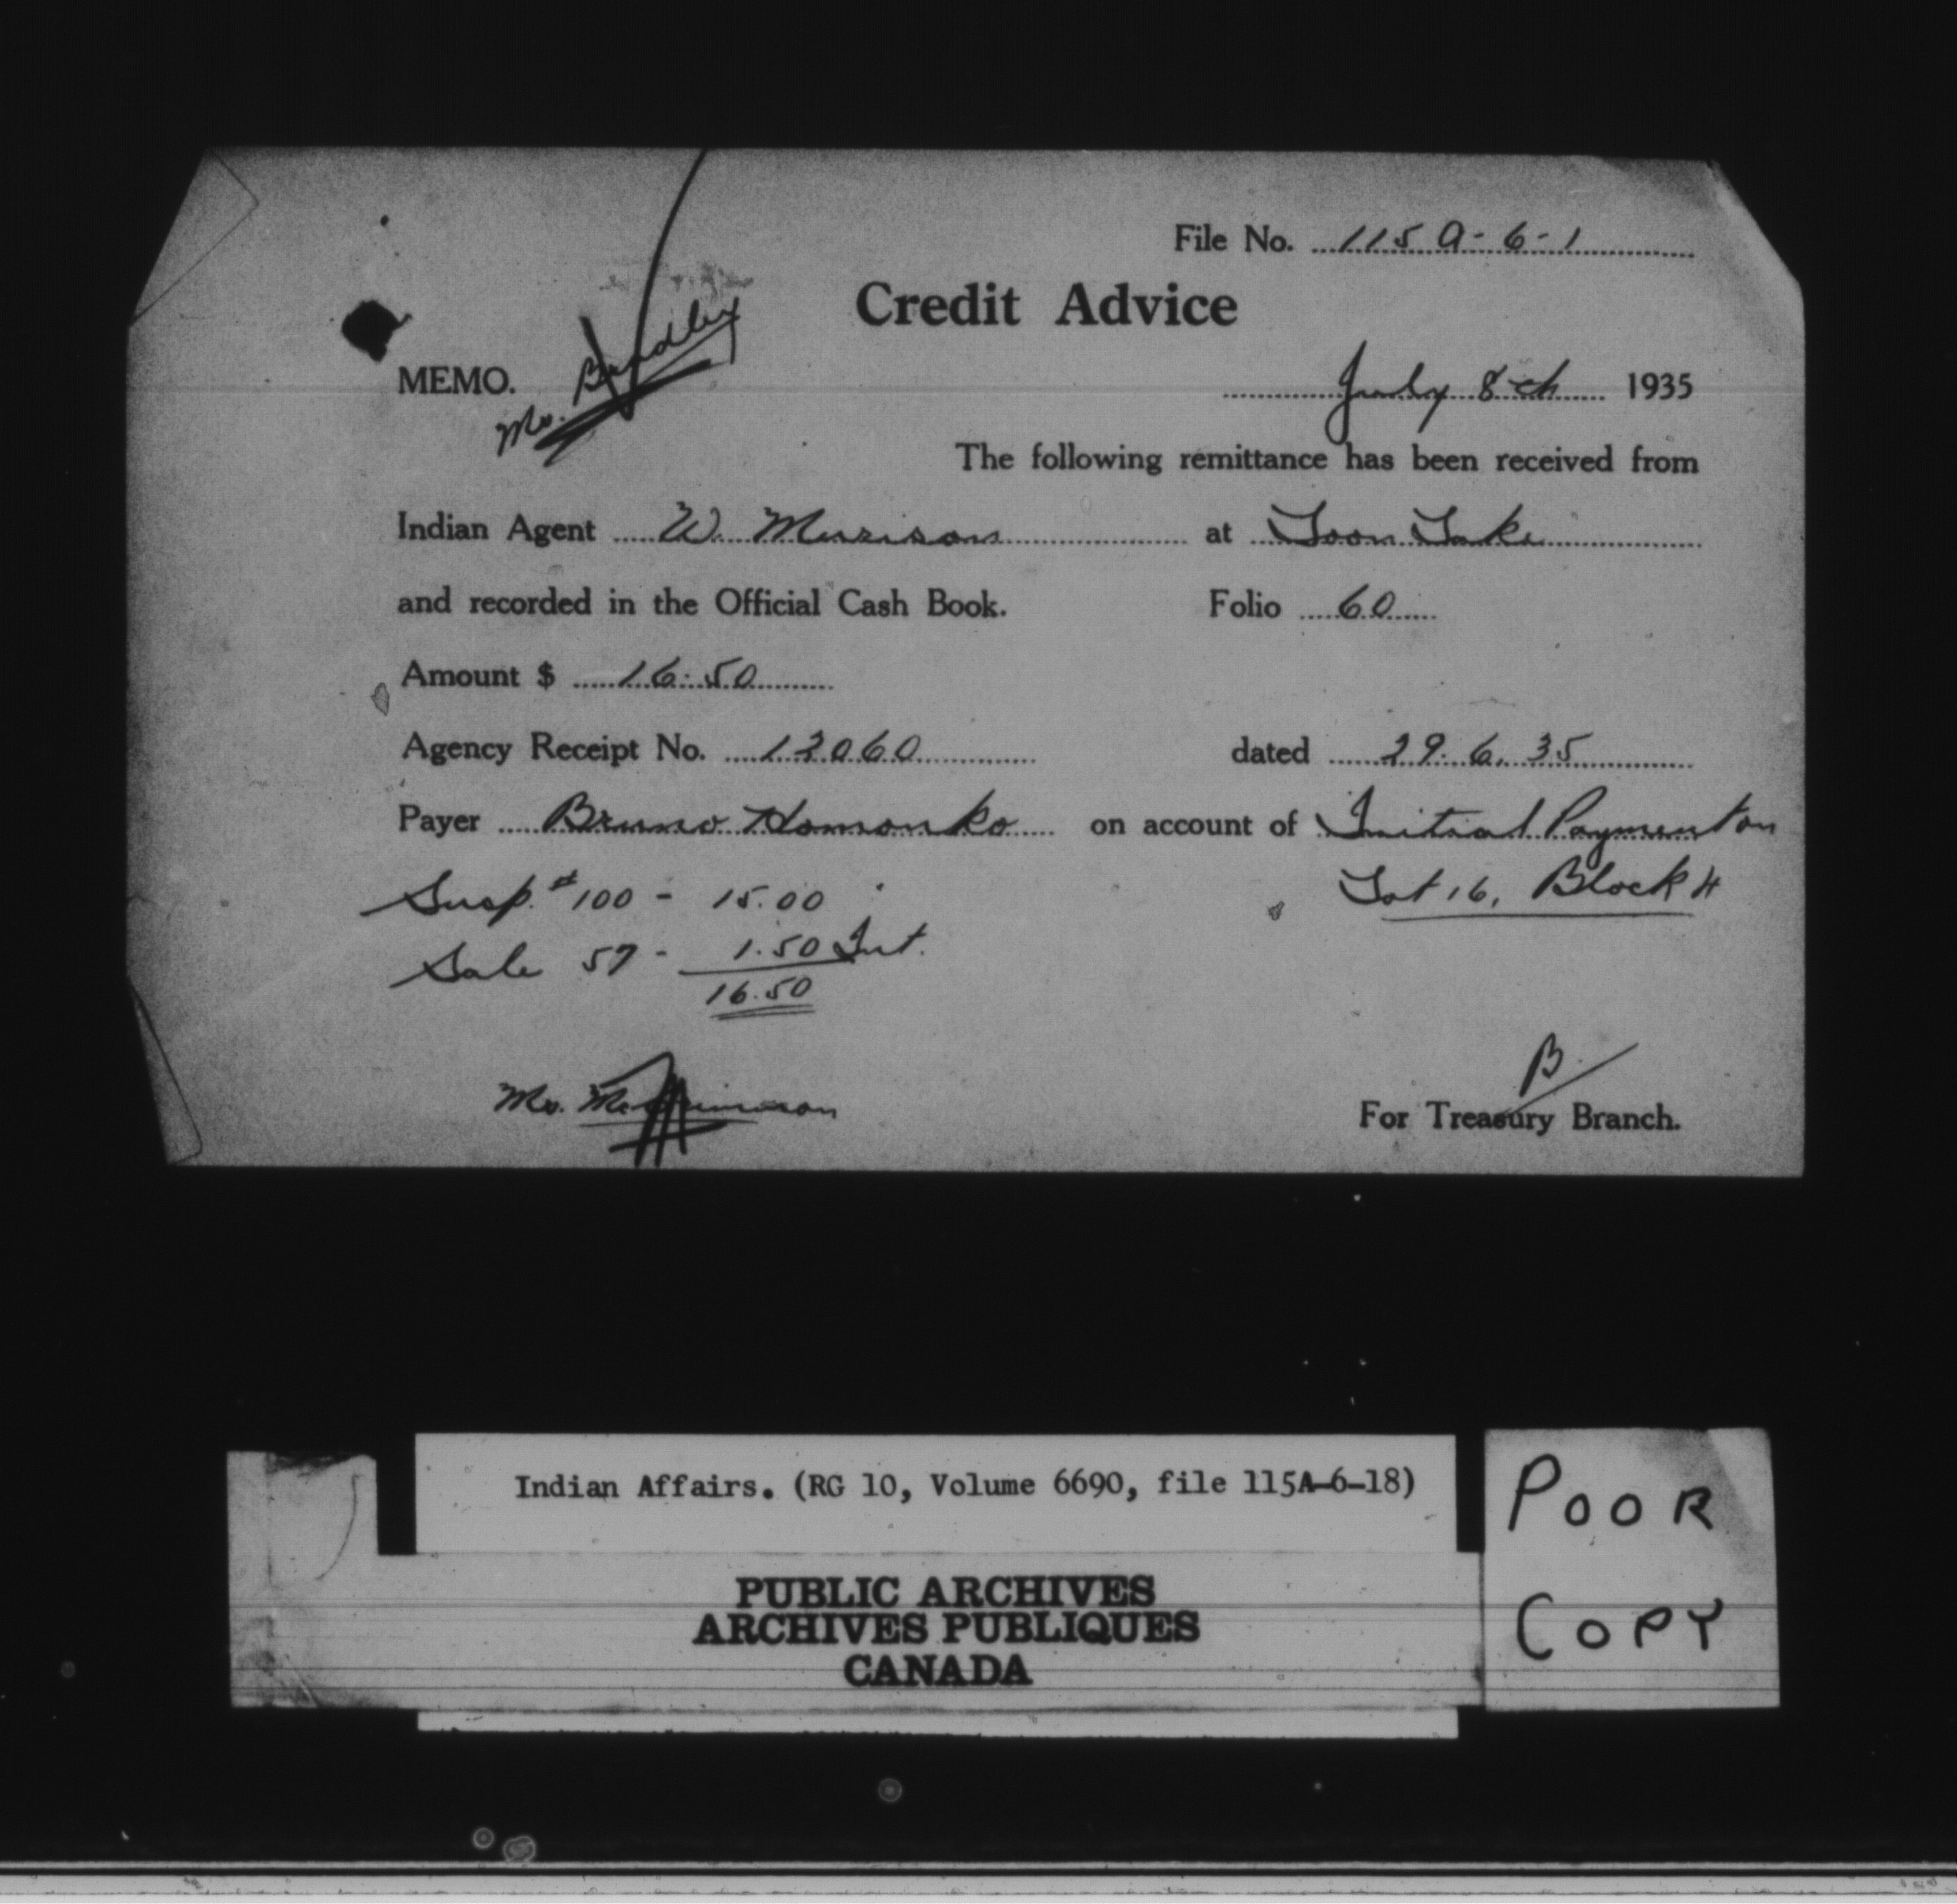 File No. 115A-6-1
Credit Advice
MEMO.
Mr. Bradley
July 8th 1935
The following remittance has been received from
Indian Agent W. Murison at Loon Lake
and recorded in the Official Cash Book. Folio 60
Amount $ 16.50
Agency Receipt No. 12060 dated 29.6.35
Payer Bruno Homonko on account of Initial Payment on
Lot 16, Block 4
Susp. #100 - 15.00
Sale 57 - 1.50 Int.
16.50
Mr.
B
For Treasury Branch.
Indian Affairs. (RG 10, Volume 6690, file 115A-6-18)
PUBLIC ARCHIVES
ARCHIVES PUBLIQUES
CANADA
POOR
COPY